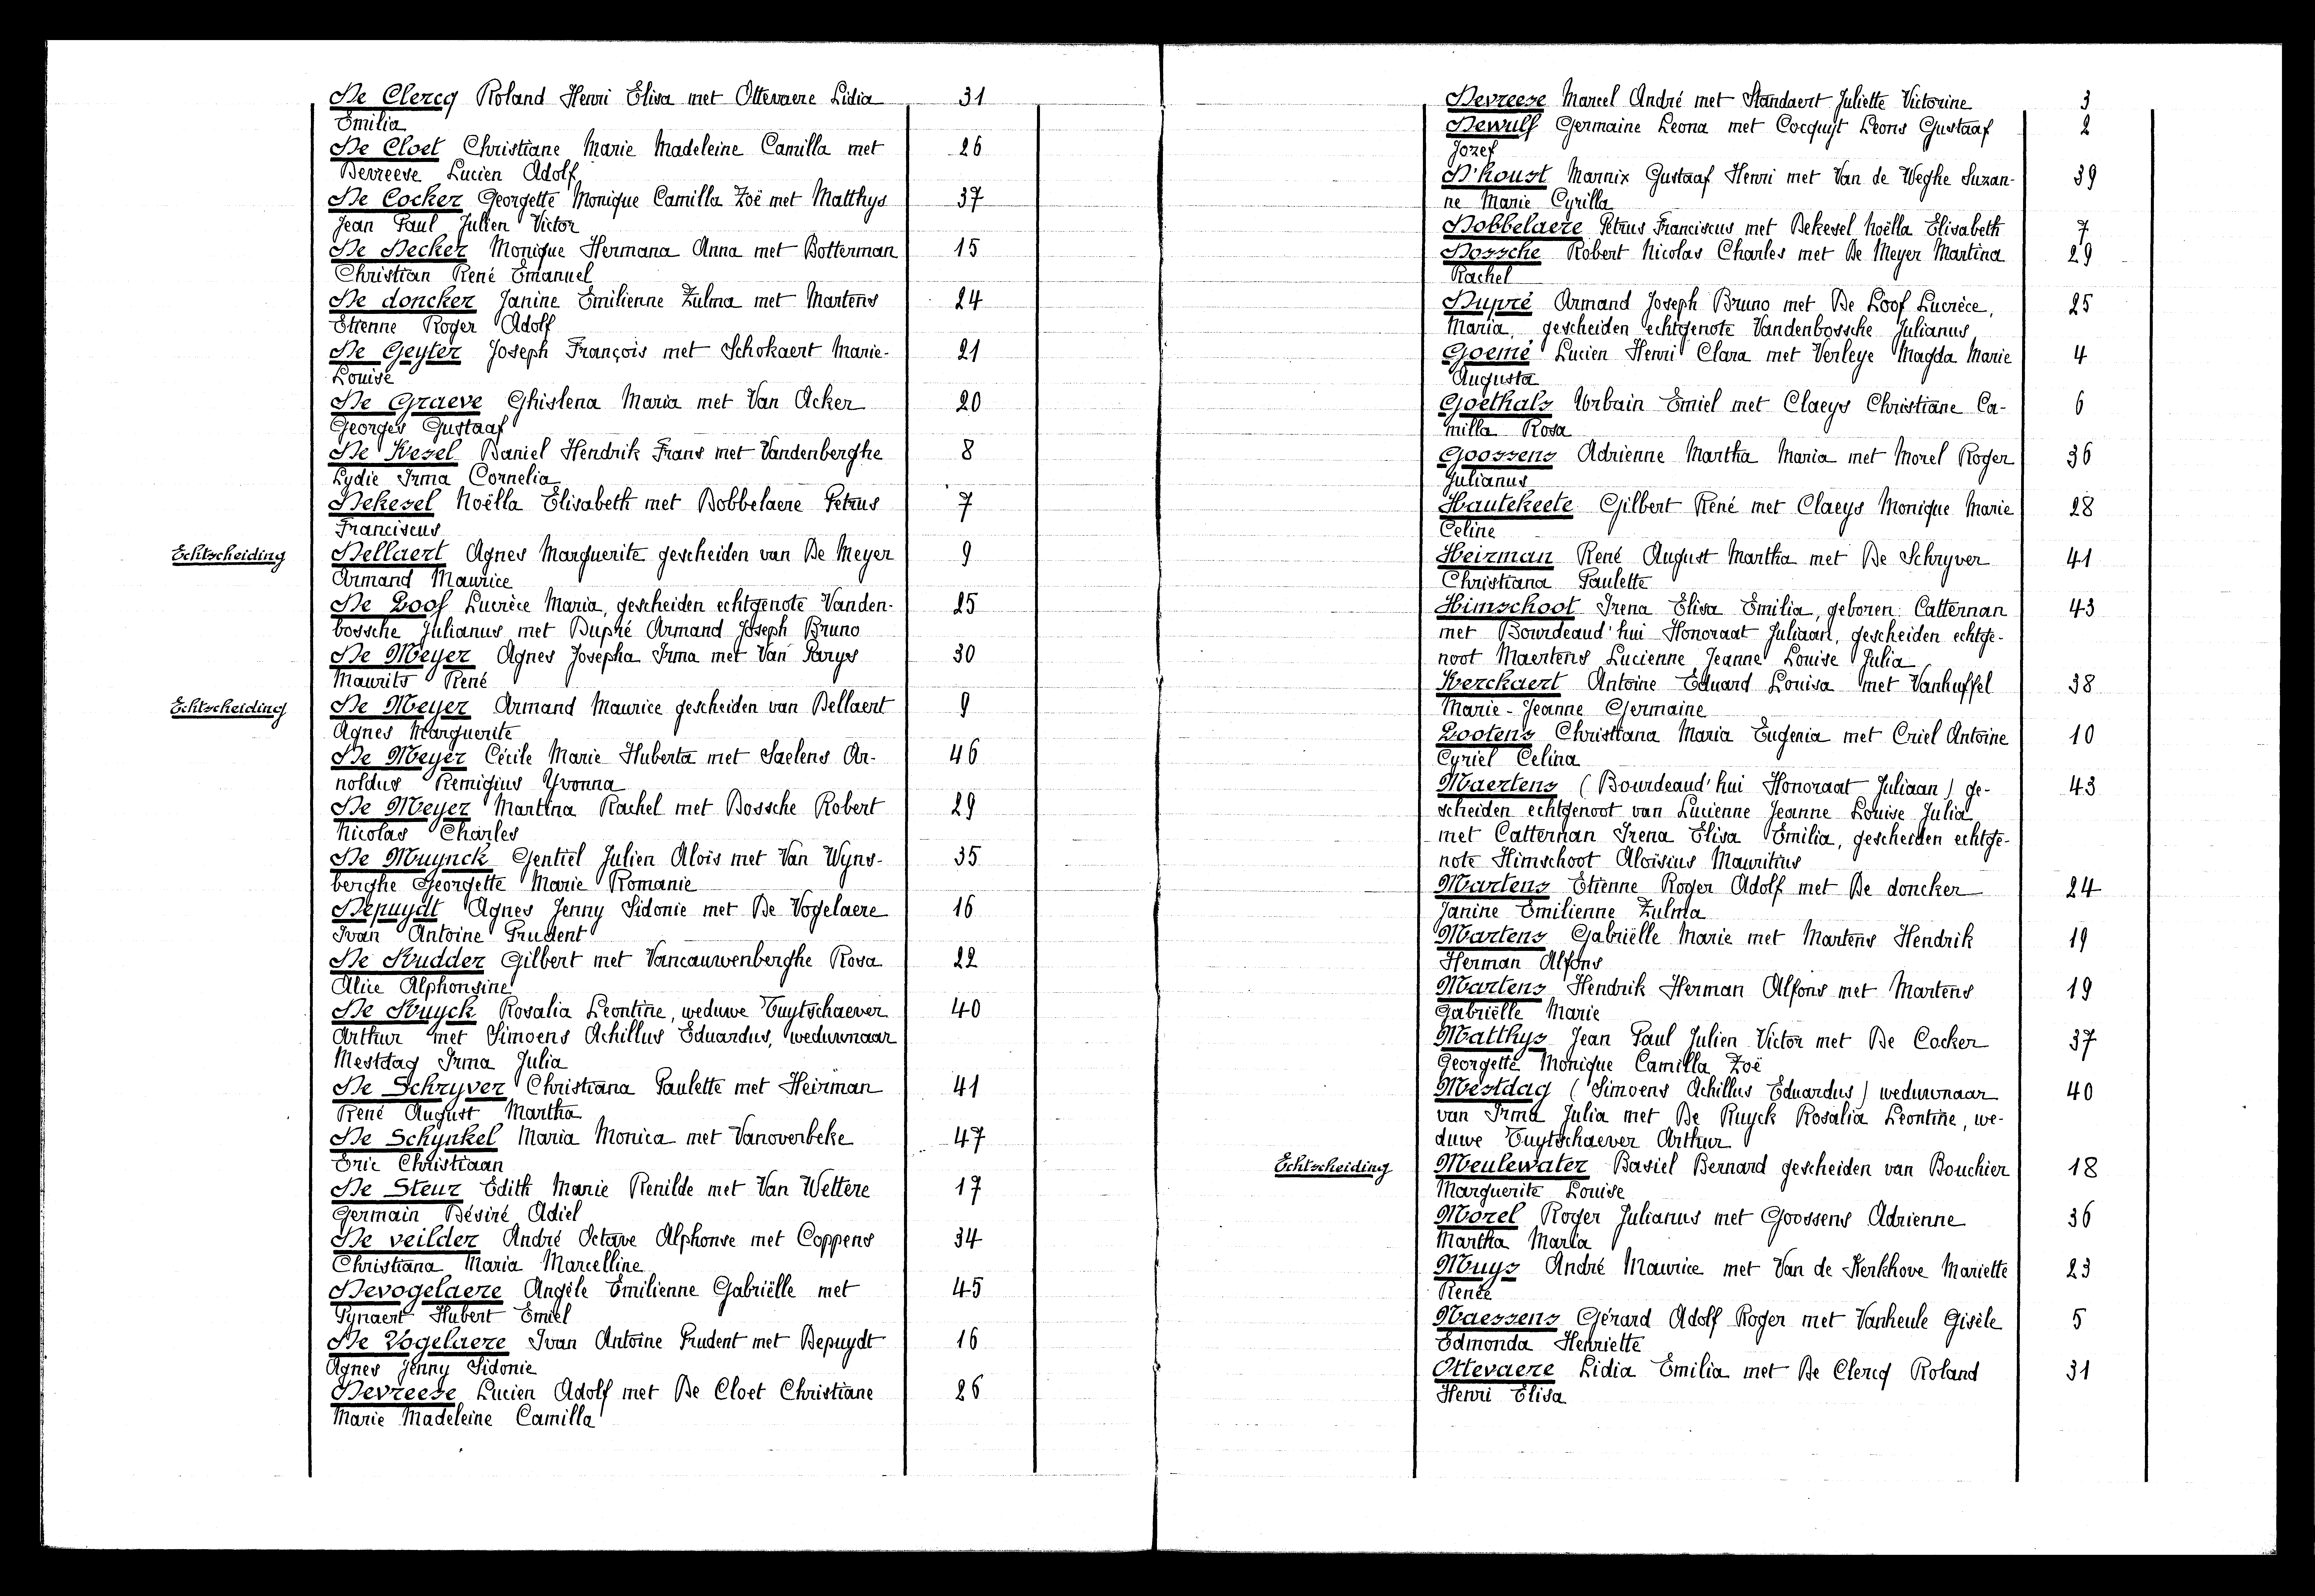 De Clercq Roland Henri Elisa met Ottevaere Lidia 31
Emilia
De Cloet Christiane Marie Madeleine Camilla met 26
Devreese Lucien Adolf
De Cocker Georgette Monique Camilla Zoë met Matthys 37
Jean Paul Julien Victor
De Decker Monique Hermana Anna met Botterman 15
Christian René Emanuel
De doncker Janine Emilienne Zulma met Martens 24
Etienne Roger Adolf
De Geyter Joseph François met Schokaert Marie- 21
Louise
De Graeve Ghislena Maria met Van Acker 20
Georges Gustaaf
De Kesel Daniel Hendrik Frans met Vandenberghe 8
Lydie Irma Cornelia
Dekesel Noëlla Elisabeth met Dobbelaere Petrus 7
Franciscus
Echtscheiding Dellaert Agnes Marguerite gescheiden van De Meyer 9
Armand Maurice
De Loof Lucrèce Maria, gescheiden echtgenote Vanden- 25
bossche Julianus met Dupré Armand Joseph Bruno
De Meyer Agnes Josepha Irma met Van Parys 30
Maurits René
Echtscheiding De Meyer Armand Maurice gescheiden van Dellaert 9
Agnes Marguerite
De Meyer Cécile Marie Huberta met Saelens Ar- 46
noldus Remigius Yvonna
De Meyer Martina Rachel met Dossche Robert 29
Nicolas Charles
De Muynck Gentiel Julien Alois met Van Wyns- 35
berghe Georgette Marie Romanie
Depuydt Agnes Jenny Sidonie met De Vogelaere 16
Ivan Antoine Prudent
De Rudder Gilbert met Vancauwenberghe Rosa 22
Alice Alphonsine
De Ruyck Rosalia Leontine, weduwe Tuytschaever 40
Arthur met Simoens Achillus Eduardus, weduwnaar
Mestdag Irma Julia
De Schryver Christiana Paulette met Heirman 41
René August Martha
De Schynkel Maria Monica met Vanoverbeke 47
Eric Christiaan
De Steur Edith Marie Renilde met Van Wettere 17
Germain Désiré Adiel
De veilder André Octave Alphonse met Coppens 34
Christiana Maria Marcelline
Devogelaere Angèle Emilienne Gabriëlle met 45
Pynaert Hubert Emiel
De Vogelaere Ivan Antoine Prudent met Depuydt 16
Agnes Jenny Sidonie
Devreese Lucien Adolf met De Cloet Christiane 26
Marie Madeleine Camilla
Devreese Marcel André met Standaert Juliette Victorine 3
Dewulf Germaine Leona met Cocquyt Leons Gustaaf 2
Jozef
D'houst Marnix Gustaaf Henri met Van de Weghe Suzan- 39
ne Marie Cyrilla
Dobbelaere Petrus Franciscus met Dekesel Noëlla Elisabeth 7
Dossche Robert Nicolas Charles met De Meyer Martina 29
Rachel
Dupré Armand Joseph Bruno met De Loof Lucrèce, 25
Maria, gescheiden echtgenote Vandenbossche Julianus
Goemé Lucien Henri Clara met Verleye Magda Marie 4
Augusta
Goethals Urbain Emiel met Claeys Christiane Ca- 6
milla Rosa
Goossens Adrienne Martha Maria met Morel Roger 36
Julianus
Hautekeete Gilbert René met Claeys Monique Marie 28
Celine
Heirman René August Martha met De Schryver 41
Christiana Paulette
Himschoot Irena Elisa Emilia, geboren: Catternan 43
met Bourdeaud'hui Honoraat Juliaan, gescheiden echtge-
noot Maertens Lucienne Jeanne Louise Julia
Kerckaert Antoine Eduard Louisa met Vanhuffel 38
Marie-Jeanne Germaine
Lootens Christiana Maria Eugenia met Criel Antoine 10
Cyriel Celina
Maertens (Bourdeaud'hui Honoraat Juliaan) ge- 43
scheiden echtgenoot van Lucienne Jeanne Louise Julia
met Catternan Irena Elisa Emilia, gescheiden echtge-
note Himschoot Aloisius Mauritius
Martens Etienne Roger Adolf met De doncker 24
Janine Emilienne Zulma
Martens Gabriëlle Marie met Martens Hendrik 19
Herman Alfons
Martens Hendrik Herman Alfons met Martens 19
Gabriëlle Marie
Matthys Jean Paul Julien Victor met De Cocker 37
Georgette Monique Camilla Zoë
Mestdag (Simoens Achillus Eduardus) weduwnaar 40
van Irma Julia met De Ruyck Rosalia Leontine, we-
duwe Tuytschaever Arthur
Echtscheiding Meulewater Basiel Bernard gescheiden van Bouchier 18
Marguerite Louise
Morel Roger Julianus met Goossens Adrienne 36
Martha Maria
Muys André Maurice met Van de Kerkhove Mariette 23
Renée
Naessens Gérard Adolf Roger met Vanheule Gisèle 5
Edmonda Henriette
Ottevaere Lidia Emilia met De Clercq Roland 31
Henri Elisa